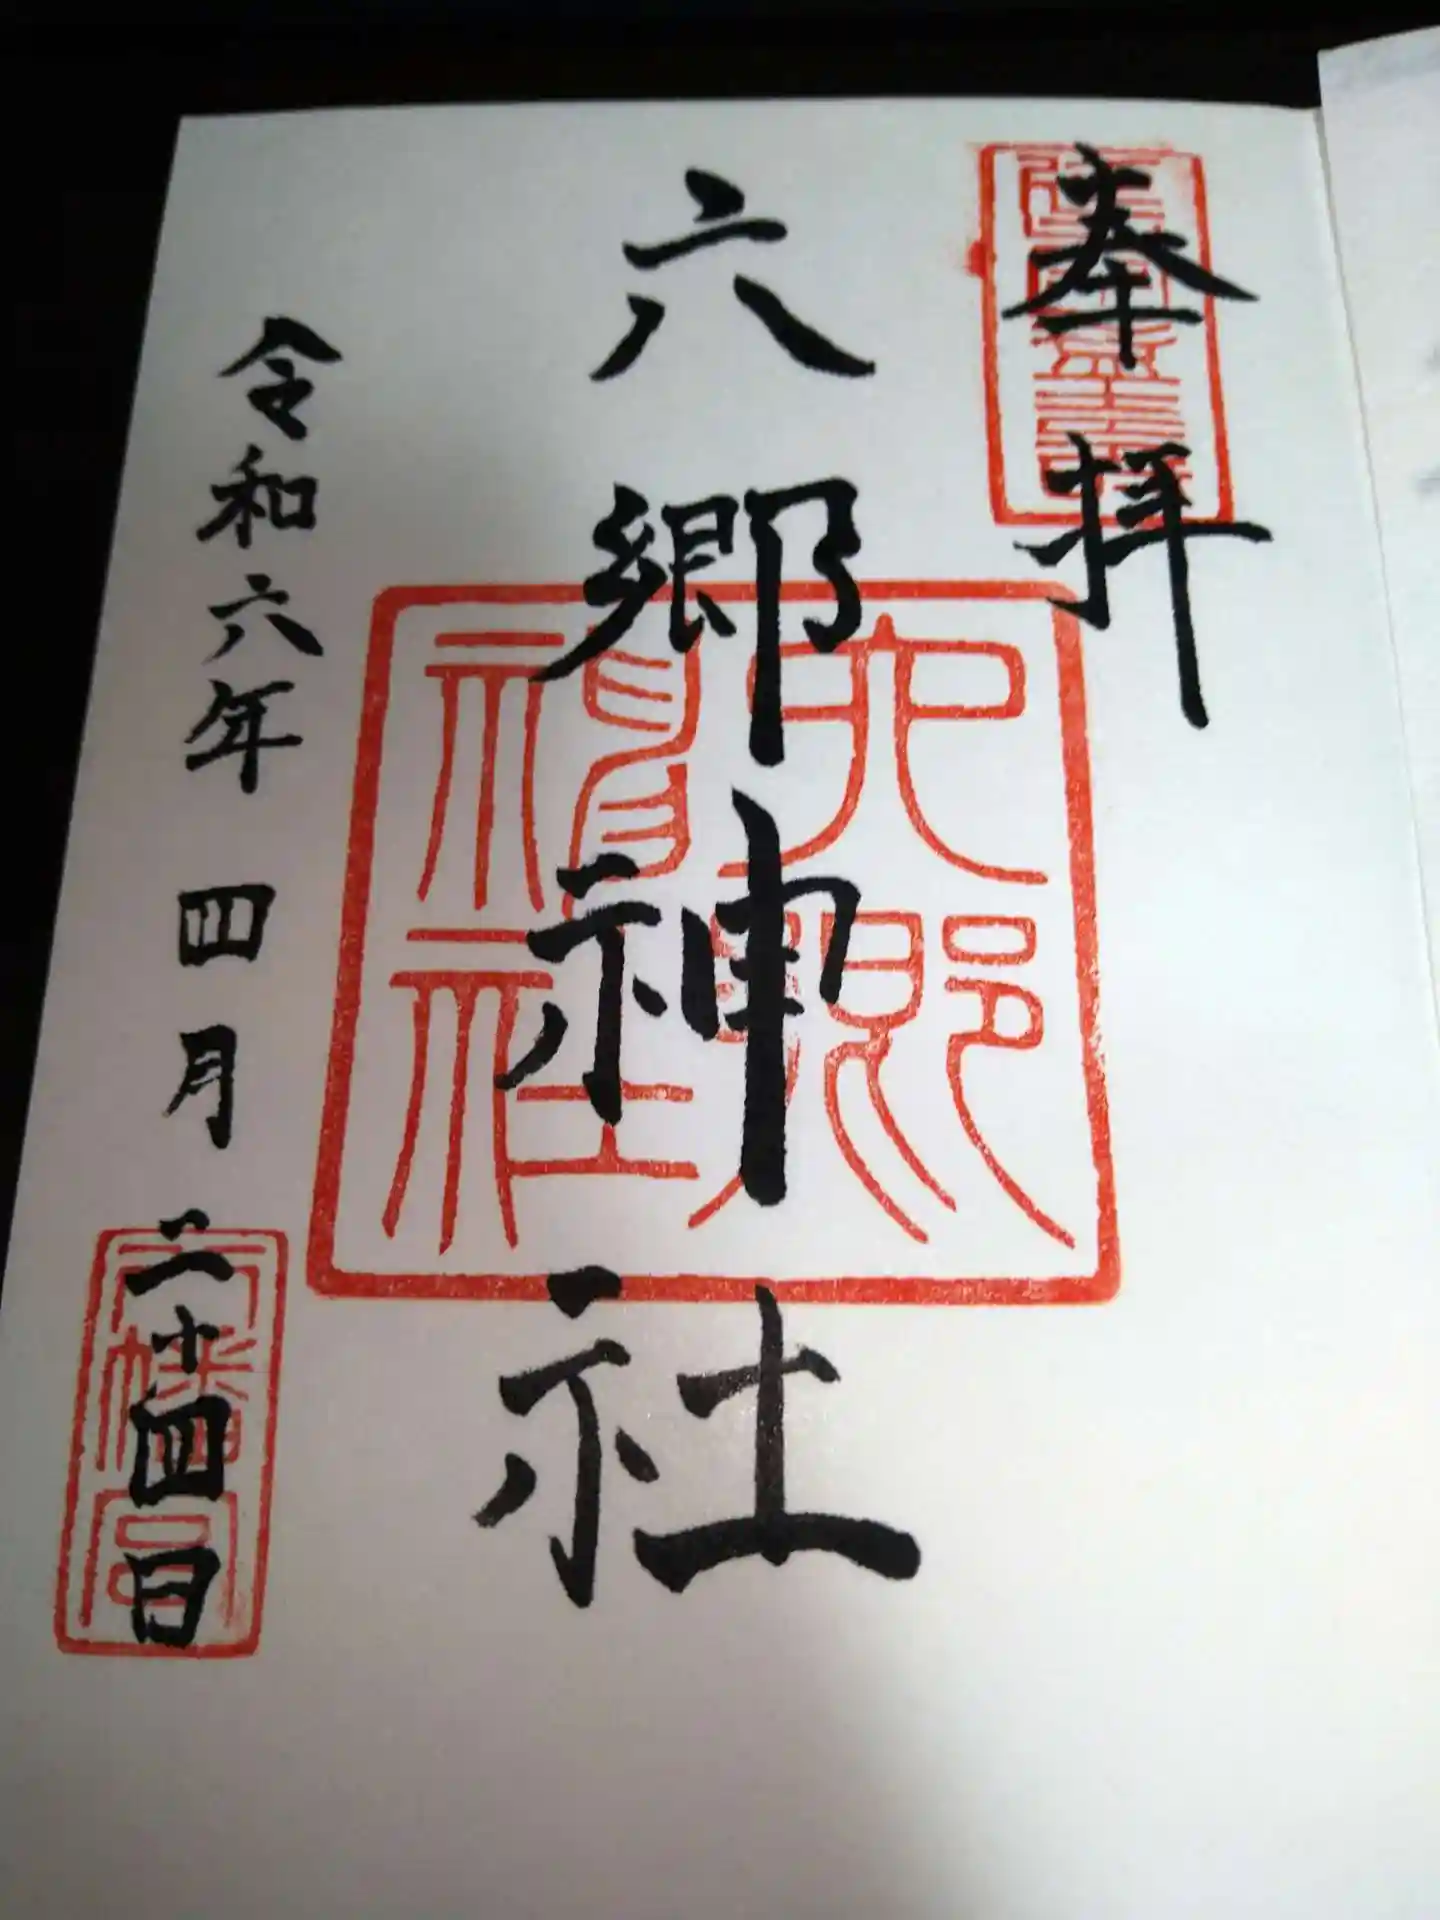 奉拝
六郷神社
六郷神社
令和六年 四月 二十四日
八幡宮